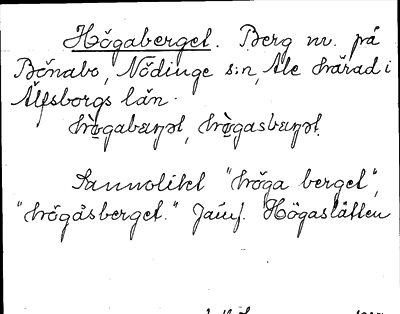 Högaberget. Berg nv. på
Bönabo, Nödinge s:n, Ale härad i
Älfsborgs län.
hö̀gabærjət, hö̀gasbærjət.
Sannolikt "höga berget",
"högåsberget." Jämf. Högaslätten